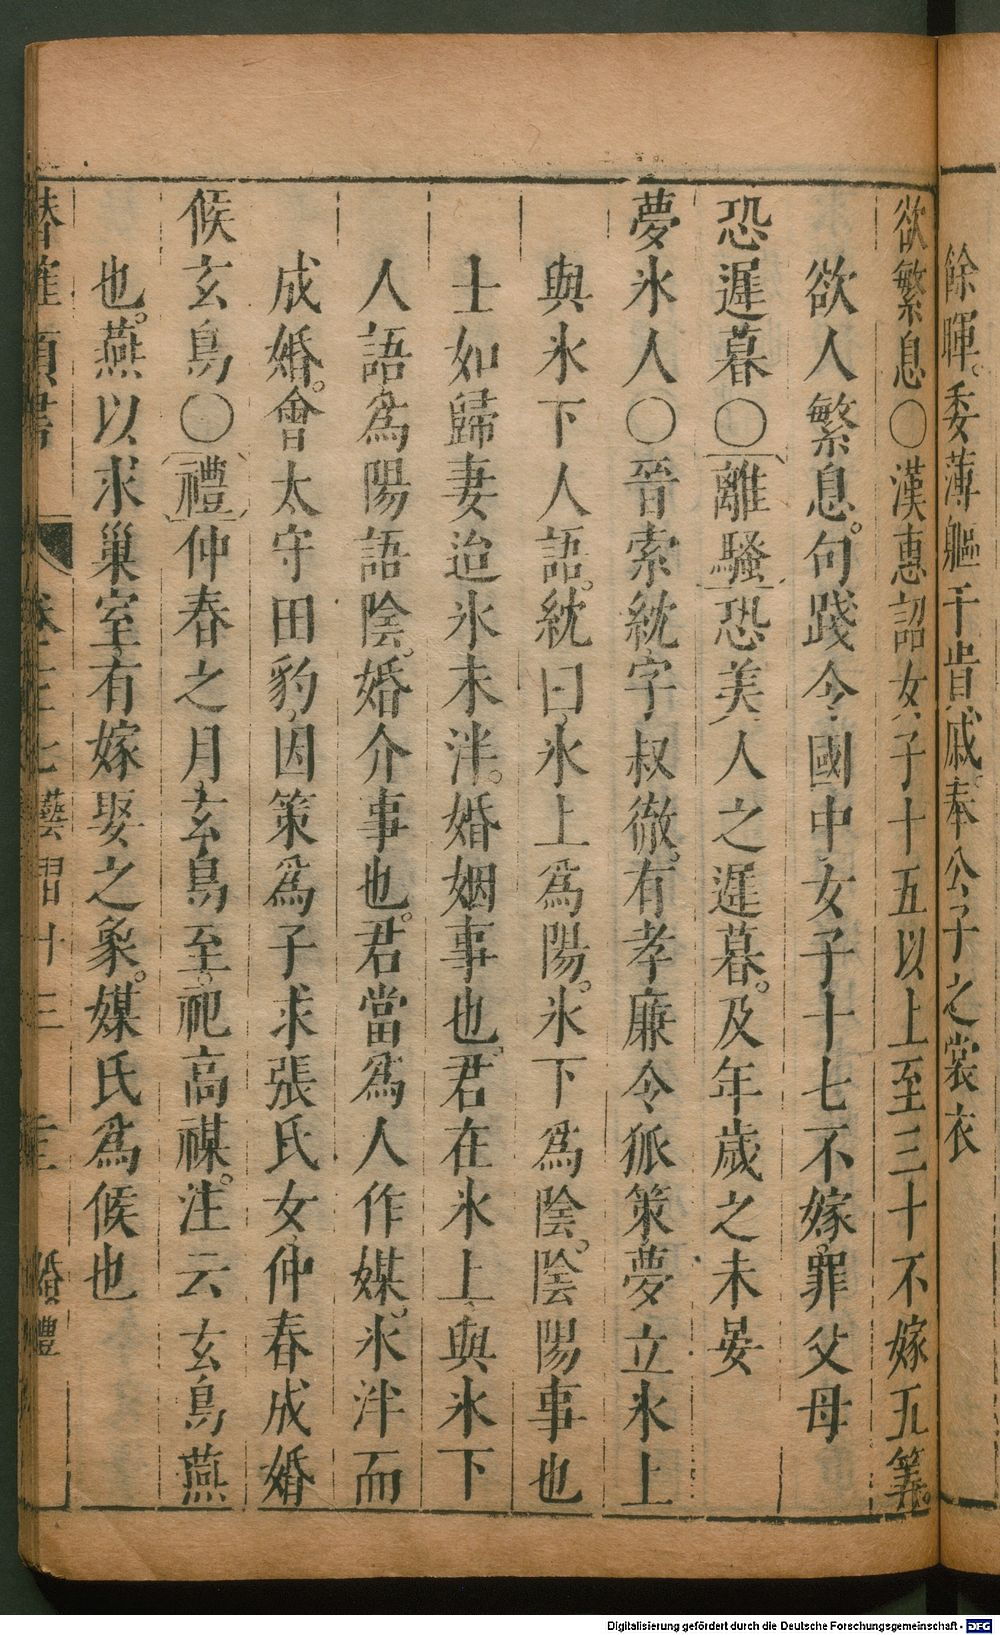 餘暉。委薄軀于貴戚。奉公子之裳衣
欲繁息〇漢惠詔女子十五以上至三十不嫁五筭。
欲人繁息。句踐令國中女子十七不嫁罪父母
恐遲暮〇離騷恐美人之遲暮。及年歲之未晏
夢氷人〇晉索紞字叔徹。有孝廉令狐策夢立氷上
與氷下人語。紞曰氷上爲陽。氷下爲陰。陰陽事也
士如歸妻迨氷未泮。婚姻事也君在氷上與氷下
人語爲陽語陰。婚介事也。君當爲人作媒。氷泮而
成婚。會太守田豹因策爲子求張氏女仲春成婚
候玄鳥〇禮仲春之月玄鳥至祀高禖。注云玄鳥燕
也。燕以求巢室有嫁娶之象。媒氏爲候也
類書 卷之 七 藝習十三 婚禮
Digitalisierung gefördert durch die Deutsche Forschungsgemeinschaft - DFG